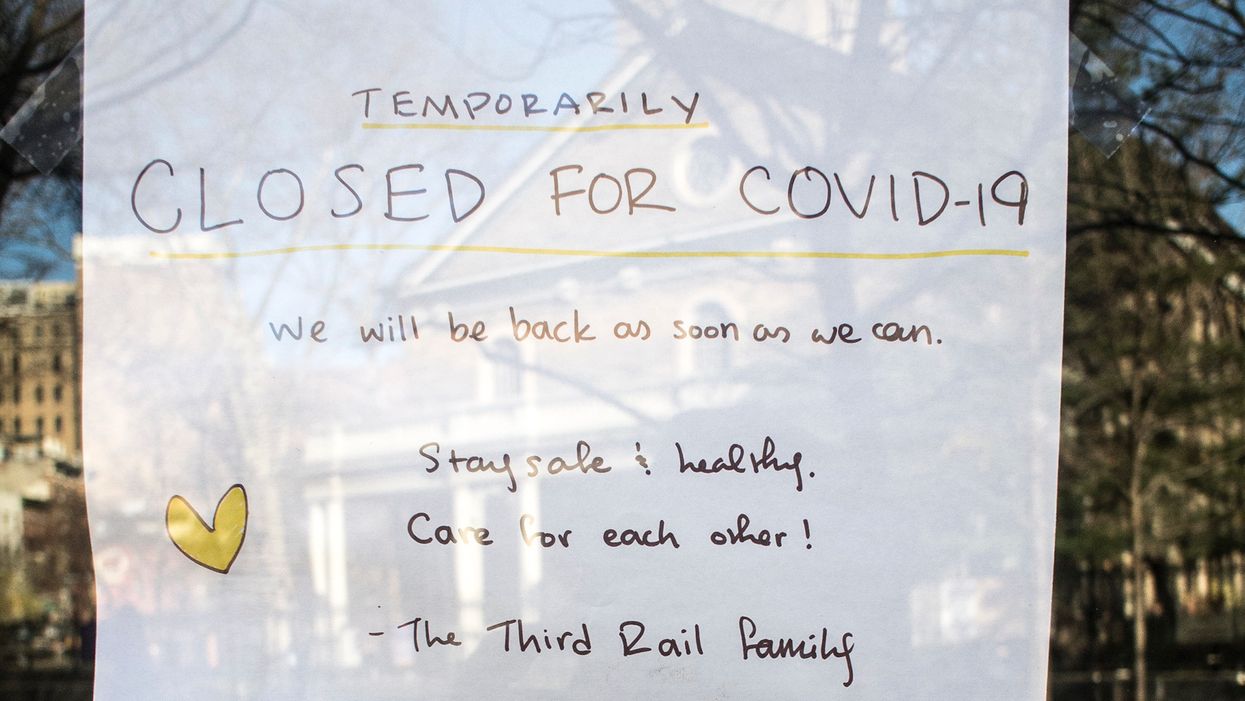 TEMPORARILY
CLOSED FOR COVID-19
We will be back as soon as we can.
Stay safe & healthy.
Care for each other!
- The Third Rail family